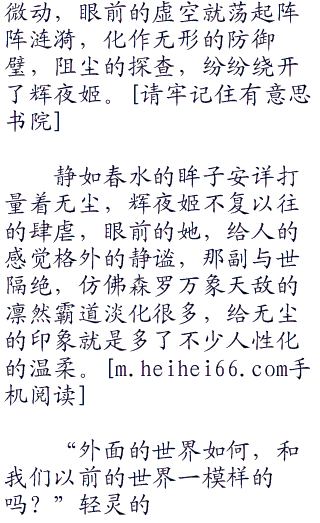 微动，眼前的虚空就荡起阵
阵涟漪，化作无形的防御
壁，阻尘的探查，纷纷绕开
了辉夜姬。[请牢记住有意思
书院]
静如春水的眸子安详打
量着无尘，辉夜姬不复以往
的肆虐，眼前的她，给人的
感觉格外的静谧，那副与世
隔绝，仿佛森罗万象天敌的
凛然霸道淡化很多，给无尘
的印象就是多了不少人性化
的温柔。[m.heihei66.com手
机阅读]
“外面的世界如何，和
我们以前的世界一模样的
吗？”轻灵的